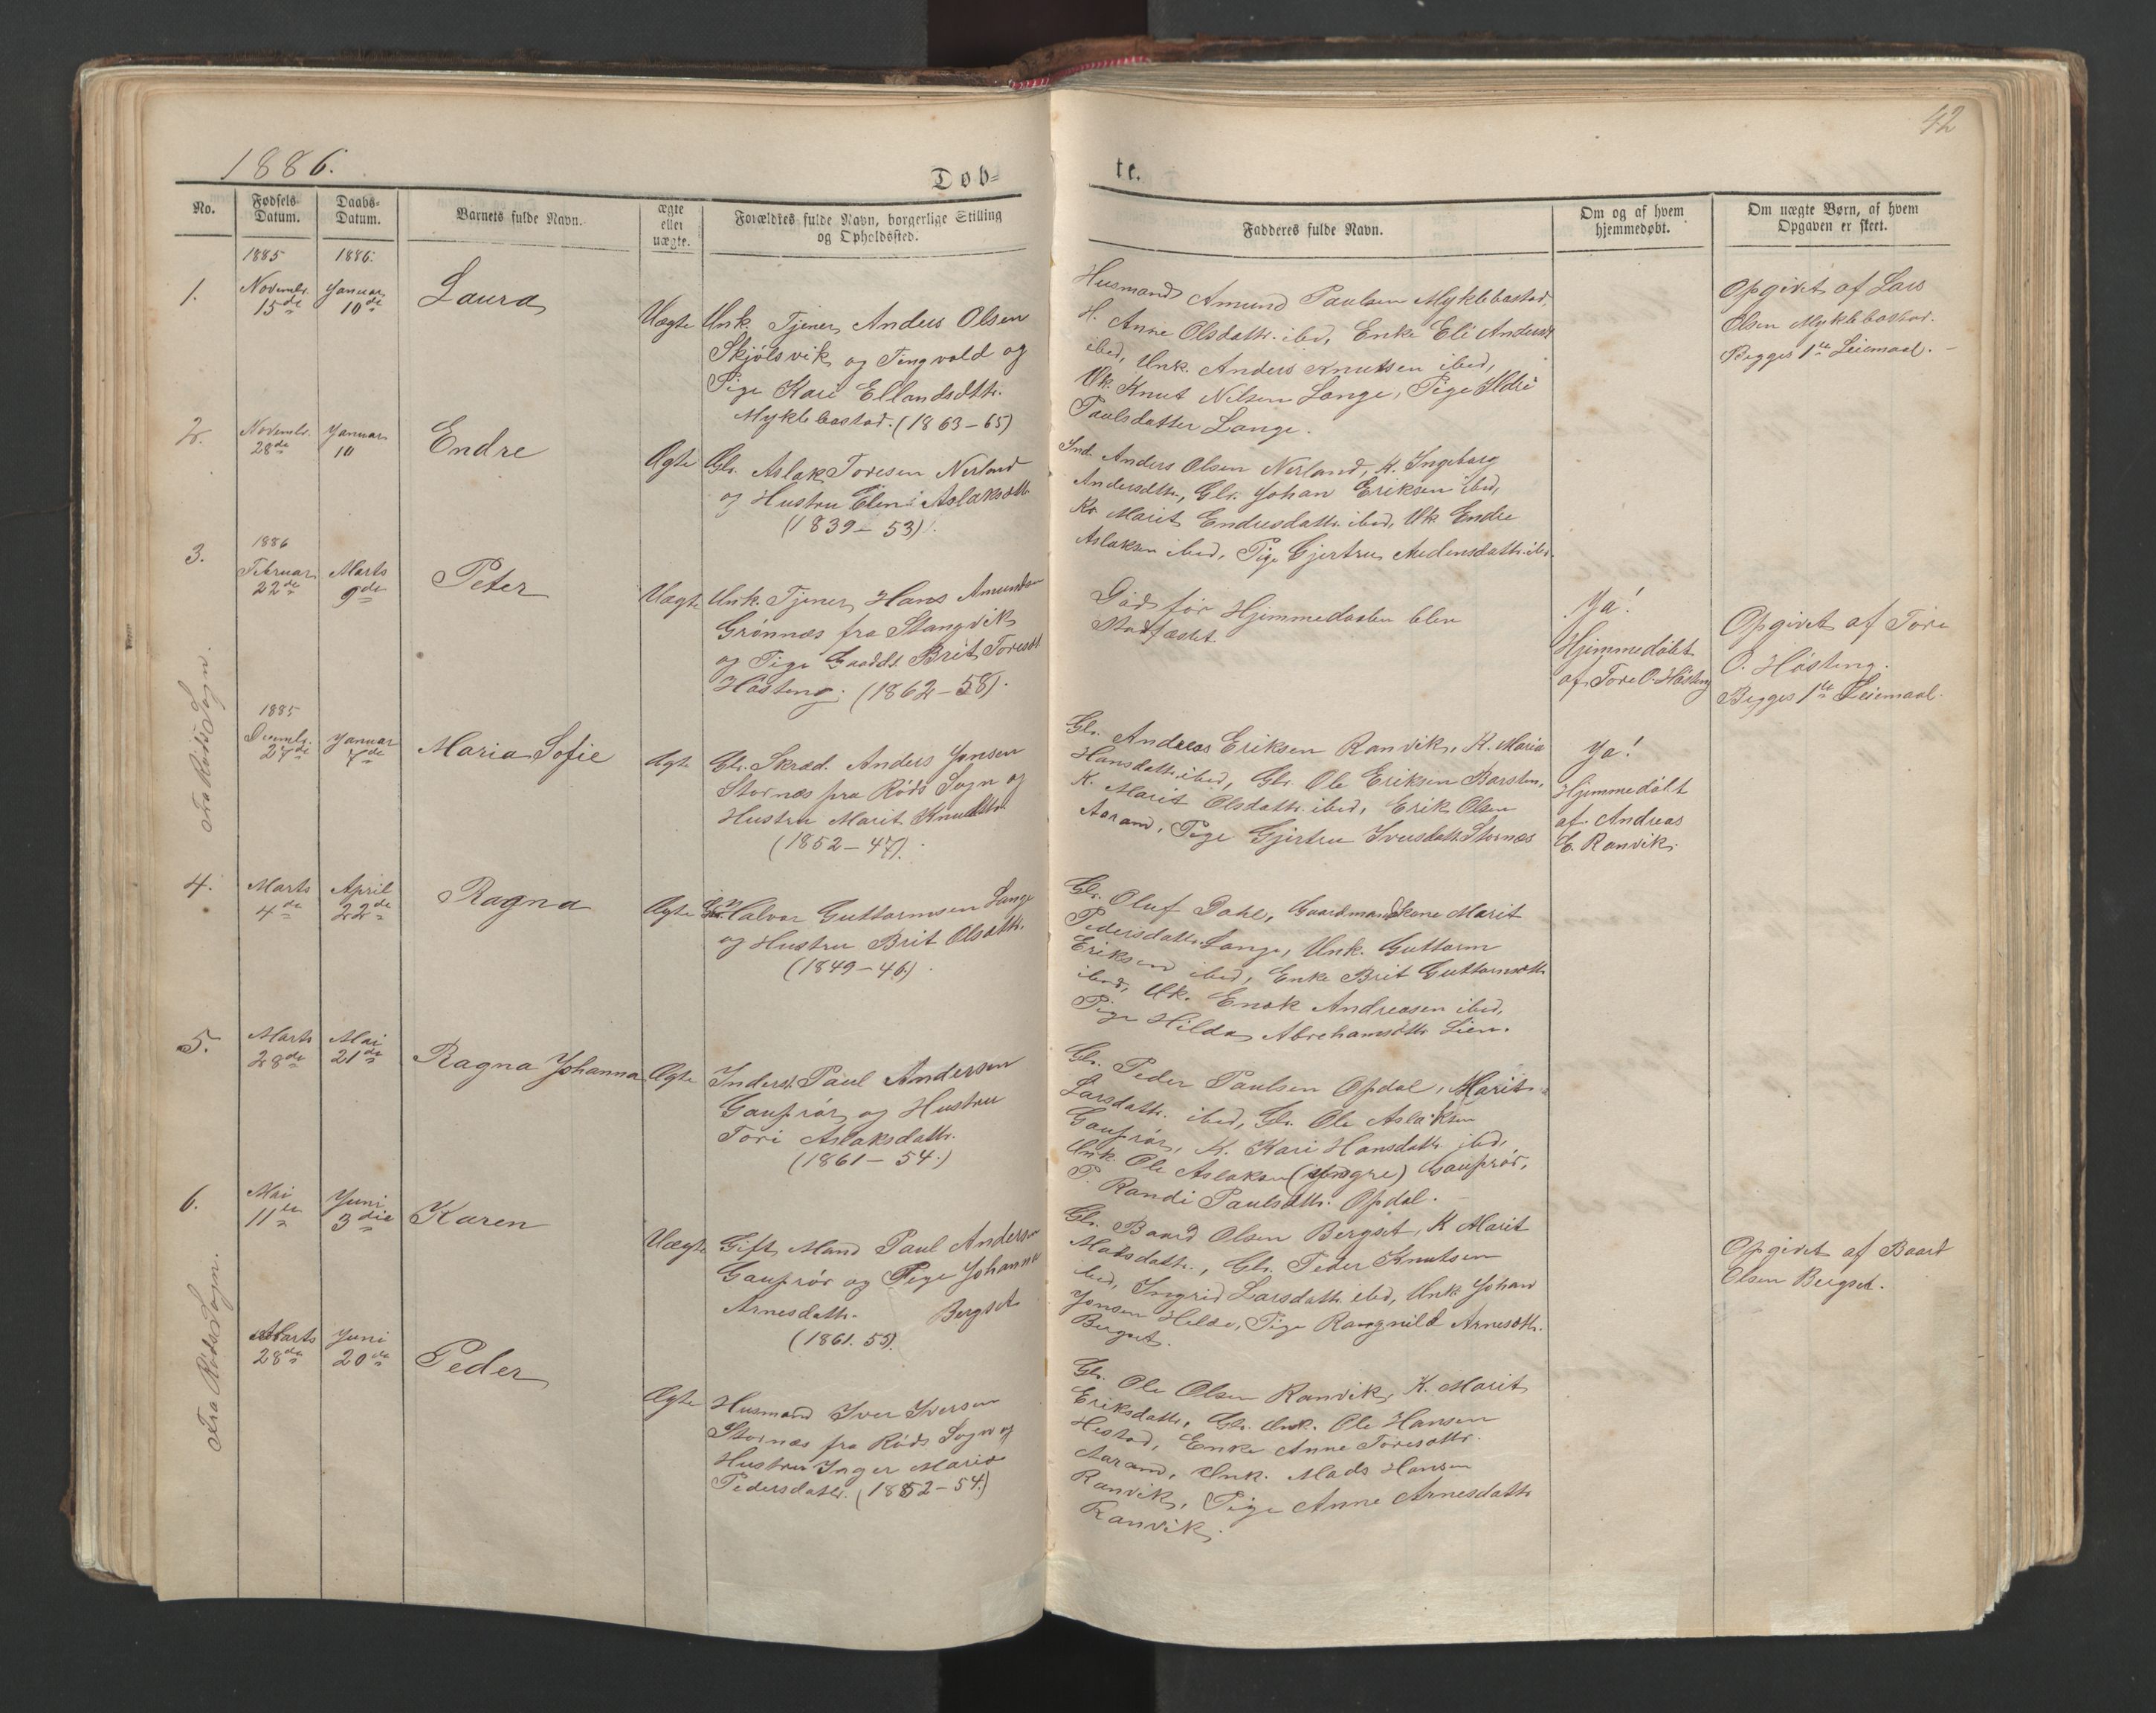 42
1886.
Døb-
te.
No.
Fødsels-
Datum.
Daabs-
Datum.
Barnets fulde Navn.
ægte
eller
uægte.
Forældres fulde Navn, borgerlige Stilling
og Opholdssted.
Fadderes fulde Navn.
Om og af hvem
hjemmedøbt.
Om uægte Børn, af hvem
Opgaven er skeet.
1885
1886.
1.
Novembr.
15de
Januar
10de
Laura
Uægte
Unk. Tjener Anders Olsen
Skjølsvik og Tingvold og
Pige Kari Ellandsdtr.
Myklebostad. (1863-65)
Husmand Amund Paulsen Myklebostad,
H. Anne Olsdattr. ibed, Enke Eli Andersd
ibed, Unk. Anders Knutsen ibed,
Uk. Knut Nilsen Lange, Pige Ildri
Paulsdatter Lange.
Opgivet af Lars
Olsen Myklebostad.
Begges 1te Leiemaal.
2.
Novembr.
28de
Januar
10
Endre
Ægte
Gbr. Aslak Toresen Nerland
og Hustru Eleni Aslaksdtt.
(1839-53).
Ind. Anders Olsen Nerland, K. Ingeborg
Andersdtr., Gbr. Johan Eriksen ibed,
K. Marit Endresdattr. ibed, Uk. Endre
Aslaksen ibed, Pige Gjertru Audensdattr. ibd.
3.
1886
Februar
22de
Marts
9de
Peter
Uægte
Unk. Tjener Hans Amundsen
Grønnæs fra Stangvik
og Pige Gaardd. Brit Toresdt
Høsteng. (1862-58).
Død før Hjemmedaaben blev
Stadfæstet.
Ja!
Hjemmedøbt
af Tore O. Høsteng
Opgivet af Tore
O. Høsteng.
Begges 1te Leiemaal.
Fra Røds Sogn.
1885
Decembr.
27de
Januar
7de
Maria Sofie
Ægte
Gbr. Skræd. Anders Jonsen
Stornæs fra Røds Sogn og
Hustru Marit Knudsdtr
(1852-47).
Gbr. Andreas Eriksen Ranvik, K. Maria
Hansdattr. ibed, Gbr. Ole Eriksen Barsten,
K. Marit Olsdattr. ibed, Erik Olsen
Aarand, Pige Gjertru Iversdatt. Stornæs
Ja!
Hjemmedøbt
af Andreas
E. Ranvik.
4.
Marts
4de
April
22de
Ragna
Ægte
Halvor Guttormsen Lange
og Hustru Brit Olsdtr.
(1849-46).
Gbr. Oluf Dahl, Gaardmandskone Marit
Pedersdattr. Lange, Unk. Guttorm
Eriksen ibed, Enke Brit Guttormsdtt
ibed, Uk. Enok Andreasen ibed,
Pige Hilda Abrahamsdtr. Lien.
5.
Marts
28de
Mai
21de
Ragna Johanna
Ægte
Inderst Paul Andersen
Gauprør og Hustru
Tori Aslaksdattr.
(1861-54.)
Gbr. Peder Paulsen Opdal, Marit
Larsdattr. ibed, Gbr. Ole Aslaksen
Gauprør, K. Kari Hansdattr. ibed,
Unk. Ole Aslaksen (yngre) Gauprør,
P. Randi Paulsdtr. Opdal.
6.
Mai
11te
Juni
3die
Karen
Uægte
Gift Mand Paul Andersen
Gauprør og Pige Johanna
Arnesdattr. Bergset
(1861. 55).
Gbr. Baard Olsen Bergset, K Marit
Madsdattr., Gbr. Peder Knutsen
ibed, Ingrid Larsdattr. ibed, Unk Johan
Jonsen Helde, Pige Rangnild Arnesdtr.
Bergset.
Opgivet af Baard
Olsen Bergset.
Fra Røds Sogn.
Marts
28de
Juni
20de
Peder
Ægte
Husmand Iver Iversen
Stornæs fra Røds Sogn og
Hustru Inger Marie
Pedersdattr. (1852-54.)
Gbr. Ole Olsen Ranvik, K. Marit
Eriksdattr., Unk. Ole Hansen
Hestad, Enke Anne Toresdtr.
Aarand, Unk. Mads Hansen
Ranvik, Pige Anne Arnesdattr
Ranvik.